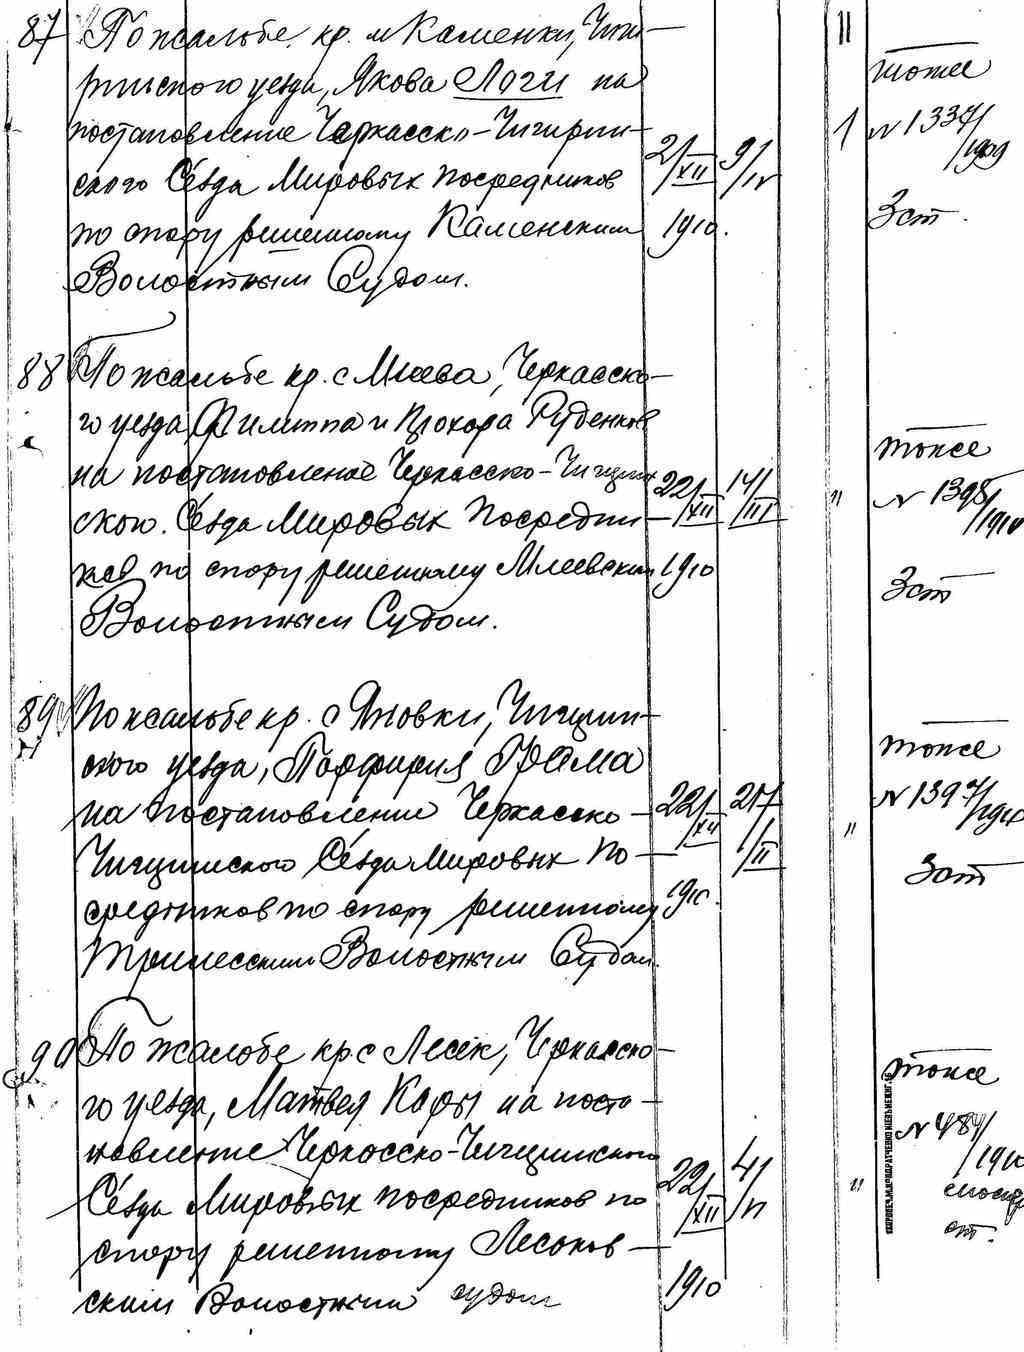 87 По жалобе кр. м. Каменки, Чиги-
ринского уезда, Якова Логи на
постановление Черкасско-Чигирин-
ского Сезда Мировых посредников
по спору решенному Каменским
Волостным Судом.
21/XII 1910. 9/IV
11
1
тоже
N 1337/1909
3 ст.
88 По жалобе кр. с. Млеева, Черкасско-
го уезда, Филиппа и Прохора Руденков
на постановление Черкасско-Чигирин
ского Сезда Мировых Посредни-
ков по спору решенному Млеевским
Волостным Судом.
22/XII 1910 14/III
"
тоже
N 1398/1910
3 ст
89 По жалобе кр. с. Яновки, Чигирин-
ского уезда, Порфирия Грама
на постановление Черкасско-
Чигиринского Сезда Мировых По-
средников по спору решенному
Трилесским Волостным Судом.
22/XII 1910. 27/II
"
тоже
N 1397/1910
3 ст
90 По жалобе кр. с. Лесек, Черкасско-
го уезда, Матвея Кары на поста-
новление Черкасско-Чигиринского
Сезда Мировых посредников по
спору решенному Лесков-
ским Волостным судом
22/XII 1910 4/
"
тоже
N 484/1910
ст.